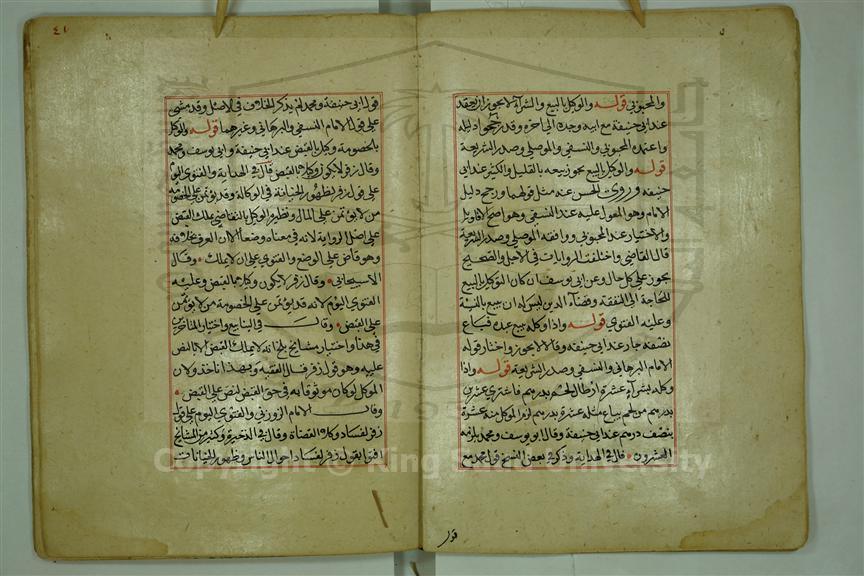 والمحبوبي قوله والوكيل بالبيع والشرآء لا يجوز ان يعقد
عند ابي حنيفة مع ابيه وجده الى اخره وقد رجحوا دليله
واعتمده المحبوبي والنسفي والموصلي وصدر الشريعة
قوله والوكيل بالبيع يجوز بيعه بالقليل والكثير عند ابي
حنيفه وروى الحسن عنه مثل قولهما ورجح دليل
الامام وهو المعول عليه عند النسفي وهو اصح الاقاويل
والاختيار عند المحبوبي ووافقه الموصلي وصدر الشريعة
قال القاضي واختلفت الروايات في الاجل والصحيح
يجوز على كل حال وعن ابي يوسف ان كان التوكيل بالبيع
للحاجة الى النفقة وقضآء الدين ليس له ان يبيع بالنسية
وعليه الفتوى قوله واذا وكله ببيع عبده فباع
نصفه جاز عند ابي حنيفه وقالا لا يجوز واختار قوله
الامام البرهاني والنسفي وصدر الشريعة قوله واذا
وكله بشرآء عشرة ارطال لحم بدرهم فاشترى عشرين
بدرهم من لحم يباع مثله عشرة بدرهم لزم الموكل منه عشرة
بنصف درهم عند ابي حنيفة وقالا ابو يوسف ومحمد يلزمه
العشرون قال في الهداية وذكر في بعض النسخ قول محمد مع
قول
٤١
قول ابي حنيفة ومحمد لم يذكر الخلاف في الاصل وقد مشى
على قول الامام النسفي والبرهاني وغيرهما قوله والوكيل
بالخصومة وكيل بالقبض عند ابي حنيفة وابي يوسف ومحمد
وقال زفر لا يكون وكيلا بالقبض قال في الهداية والفتوى اليوم
على قول زفر لظهور الخيانة في الوكالة وقد يؤتمن على الخصومه
من لا يؤتمن على المال ونظير الوكيل بالتقاضي يملك القبض
على اصل الرواية لانه في معناه وضعا الا ان العرف بخلافه
وهو قاض على الوضع والفتوى على ان لا يملك وقال
الاسبيجابي وقال زفر لا يكون وكيلا بالقبض وعليه
الفتوى اليوم لانه قد يؤتمن على الخصومة من لا يؤتمن
على القبض وقال في الينابيع واختيار المتاخرين
في هذا واختيار مشايخ بلخ انه لا يملك القبض الا بالنص
عليه وهو قول زفر قال الفقيه وبهذا ناخذ ولان
الموكل لو كان موثوقا به في حق القبض لنص على القبض
وقال الامام الزوزني والفتوى اليوم على قول
زفر لفساد وكلاء القضاة وقال في الذخيرة وكثير من المشايخ
افتوا بقول زفر لفساد احوال الناس وظهور الخيانات
Copyright © King Saud University